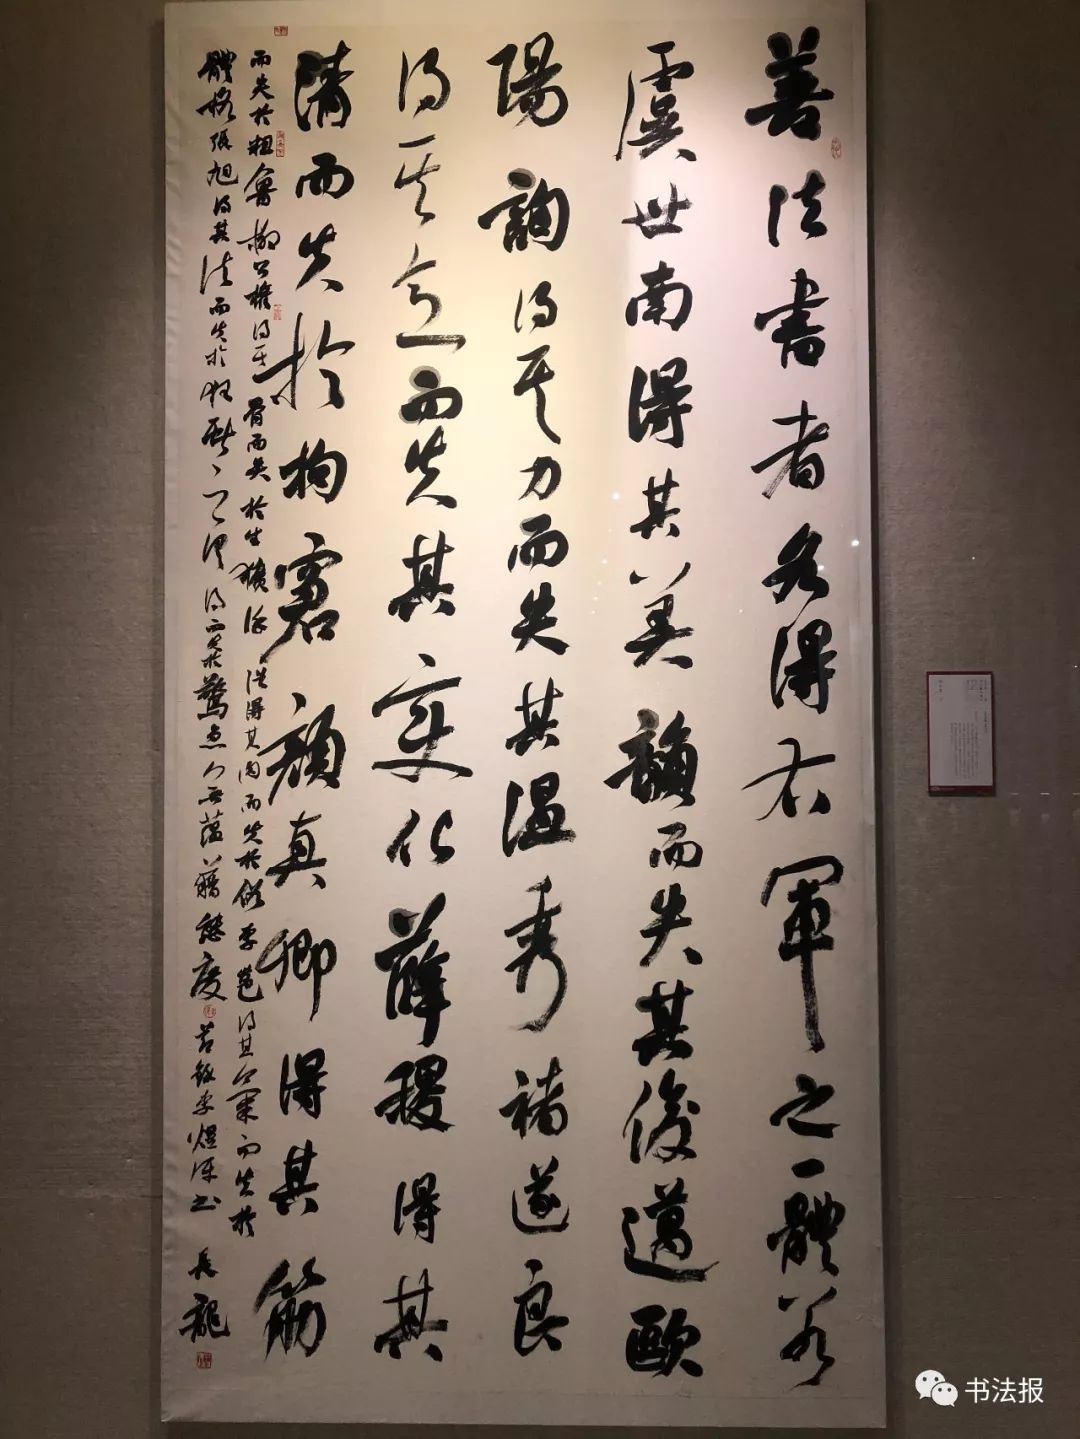 善法書者各得右軍之一體若
虞世南得其美韻而失其俊邁歐
陽詢得其力而失其温秀褚遂良
得其意而失其變化薛稷得其
清而失於拘窘顏真卿得其筋
而失於粗魯柳公權得其骨而失於生獷徐浩得其肉而失於俗李邕得其氣而失於
體格張旭得其法而失於狂獻之俱得而失驚急無蘊藉態度 李煜評書 長龍
书法报